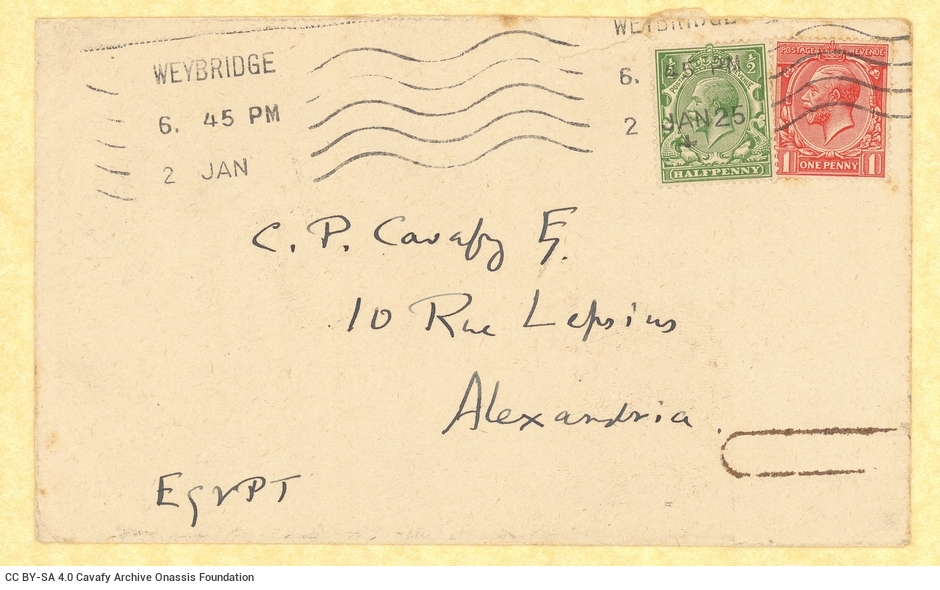 WEYBRIDGE
6. 45 PM
2 JAN
WEYBRIDGE
6. 45 PM
2 JAN 25
½ ½
HALFPENNY
POSTAGE REVENUE
1 ONE PENNY 1
C. P. Cavafy E.
10 Rue Lepsius
Alexandria.
EGYPT
CC BY-SA 4.0 Cavafy Archive Onassis Foundation